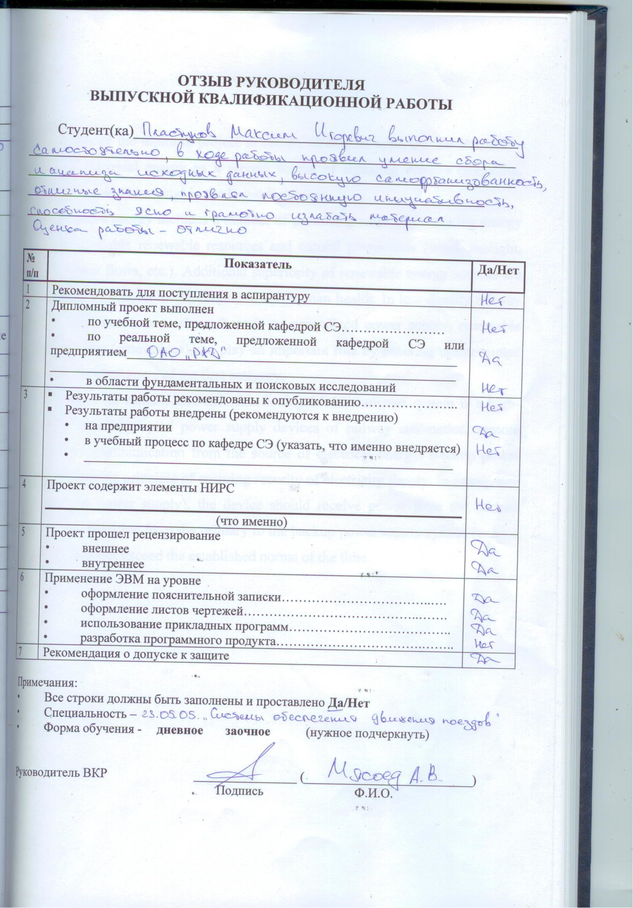 ОТЗЫВ РУКОВОДИТЕЛЯ
ВЫПУСКНОЙ КВАЛИФИКАЦИОННОЙ РАБОТЫ
Студент(ка) Пластунов Максим Игоревич выполнил работу
самостоятельно, в ходе работы проявил умение сбора
и анализа исходных данных, высокую самоорганизованность,
отличные знания, проявлял постоянную инициативность,
способность ясно и грамотно излагать материал
Оценка работы - отлично
№ п/п Показатель Да/Нет
1 Рекомендовать для поступления в аспирантуру Нет
2 Дипломный проект выполнен
• по учебной теме, предложенной кафедрой СЭ…………………… Нет
• по реальной теме, предложенной кафедрой СЭ или
предприятием ОАО „РЖД" Да
• в области фундаментальных и поисковых исследований Нет
3 ▪ Результаты работы рекомендованы к опубликованию………………….. Нет
▪ Результаты работы внедрены (рекомендуются к внедрению)
• на предприятии Да
• в учебный процесс по кафедре СЭ (указать, что именно внедряется) Нет
•
4 Проект содержит элементы НИРС Нет
(что именно)
5 Проект прошел рецензирование
• внешнее Да
• внутреннее Да
6 Применение ЭВМ на уровне
• оформление пояснительной записки…………………………….…. Да
• оформление листов чертежей………………………………………. Да
• использование прикладных программ……………………………….. Да
• разработка программного продукта………………………………….. Нет
7 Рекомендация о допуске к защите Да
Примечания:
• Все строки должны быть заполнены и проставлено Да/Нет
• Специальность – 23.05.05. „Системы обеспечения движения поездов"
• Форма обучения - дневное заочное (нужное подчеркнуть)
Руководитель ВКР ( Мясоед А.В. )
Подпись Ф.И.О.